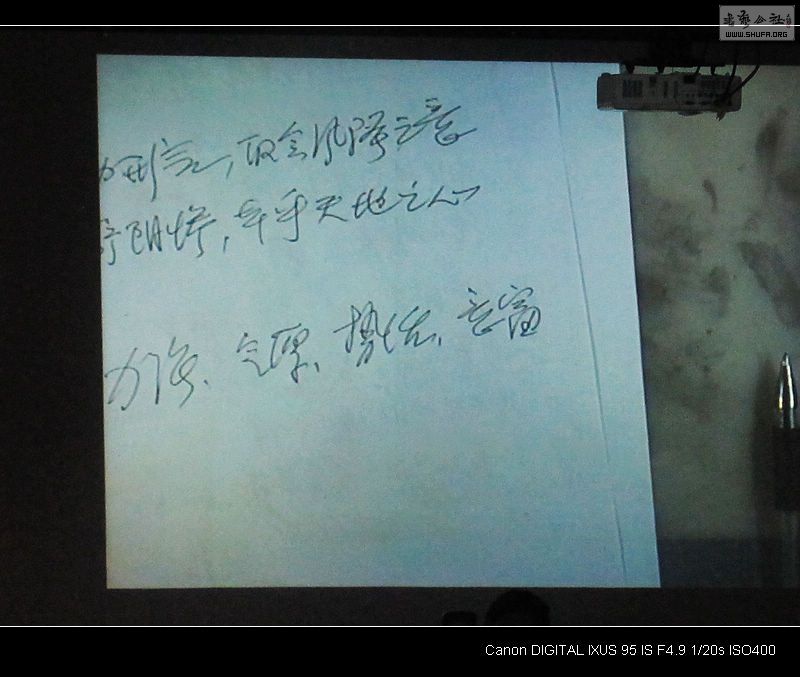 书艺公社
WWW.SHUFA.ORG
形言,取会风骚之意
舒阴惨,本乎天地之心
力强、气厚、势、意富
Canon DIGITAL IXUS 95 IS F4.9 1/20s ISO400